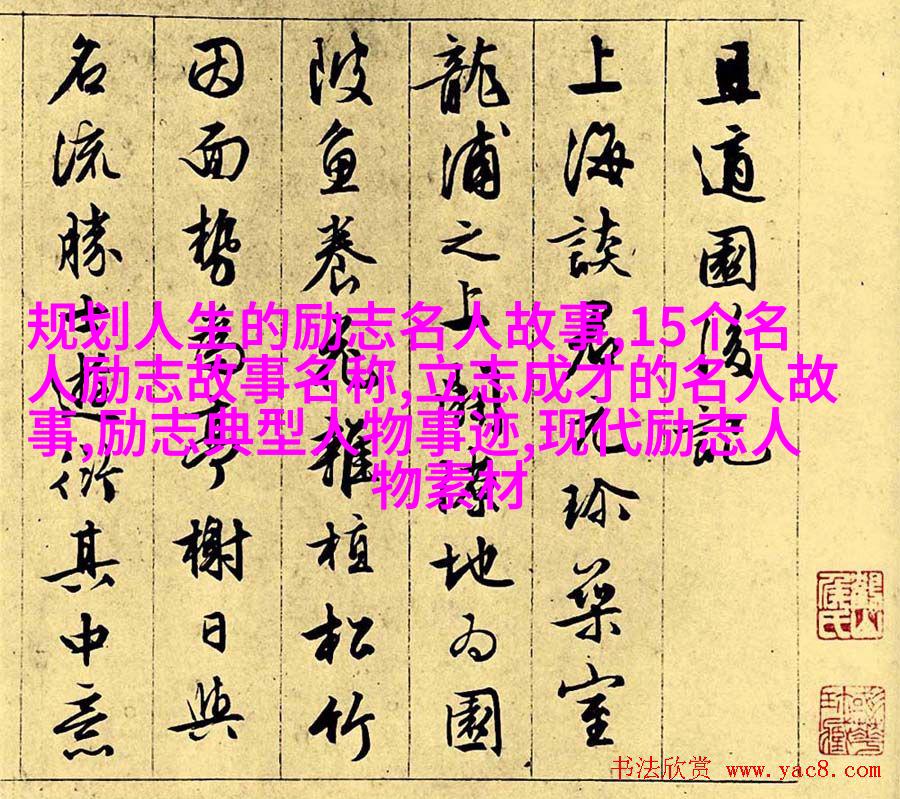 且適園後記
上海談君元珍築室
龍浦之上闢地為園
陂魚養花雜植松竹
因面勢為亭榭日與
名流勝士遊衍其中意
规划人生的励志名人故事,15个名
人励志故事名称,立志成才的名人故
事,励志典型人物事迹,现代励志人
物素材
书法欣赏 www.yac8.com